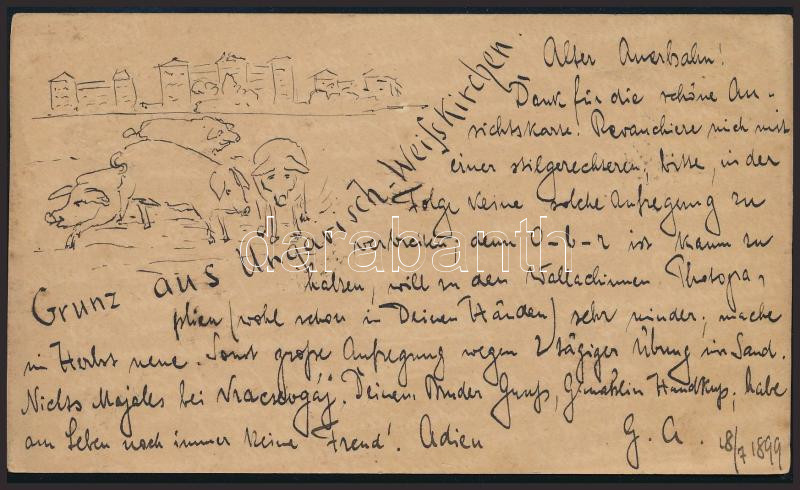 Alter Auerhahn!
Dank für die schöne An-
sichtskarte! Revanchiere mich mit
einer stilgerechteren, bitte, in der
Folge keine solche Aufregung zu
verbreiten; denn O-b-r ist kaum zu
halten, will zu den Wallachinnen. Photogra-
phien (wohl schon in Deinen Händen) sehr minder; mache
im Herbst neue. Sonst große Aufregung wegen 2 tägiger Übung im Sand.
Nichts Majales bei Vracsevgáj. Deinem Bruder Gruß, Gemahlin Handkuß, habe
am Leben noch immer keine "Freud"! Adieu
G. A. 18/7 1899
Grunz aus Ungarisch-Weißkirchen.
darabanth